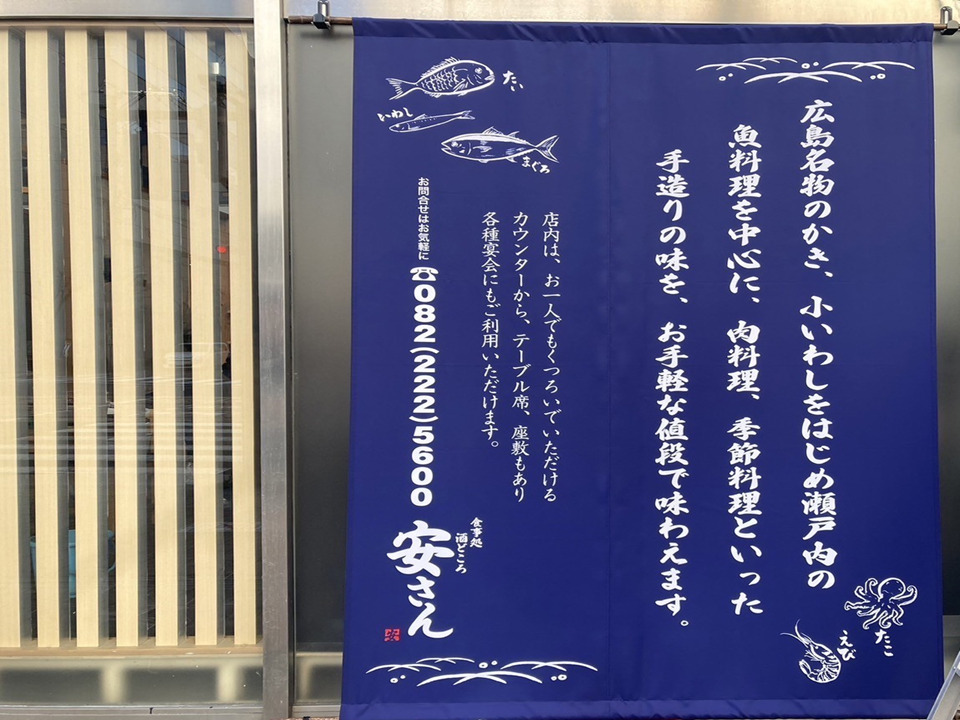 広島名物のかき、小いわしをはじめ瀬戸内の
魚料理を中心に、肉料理、季節料理といった
手造りの味を、お手軽な値段で味わえます。
たこ
えび
店内は、お一人でもくつろいでいただける
カウンターから、テーブル席、座敷もあり
各種宴会にもご利用いただけます。
たい
いわし
まぐろ
お問合せはお気軽に
☎082(222)5600
食事処
酒どころ
安さん